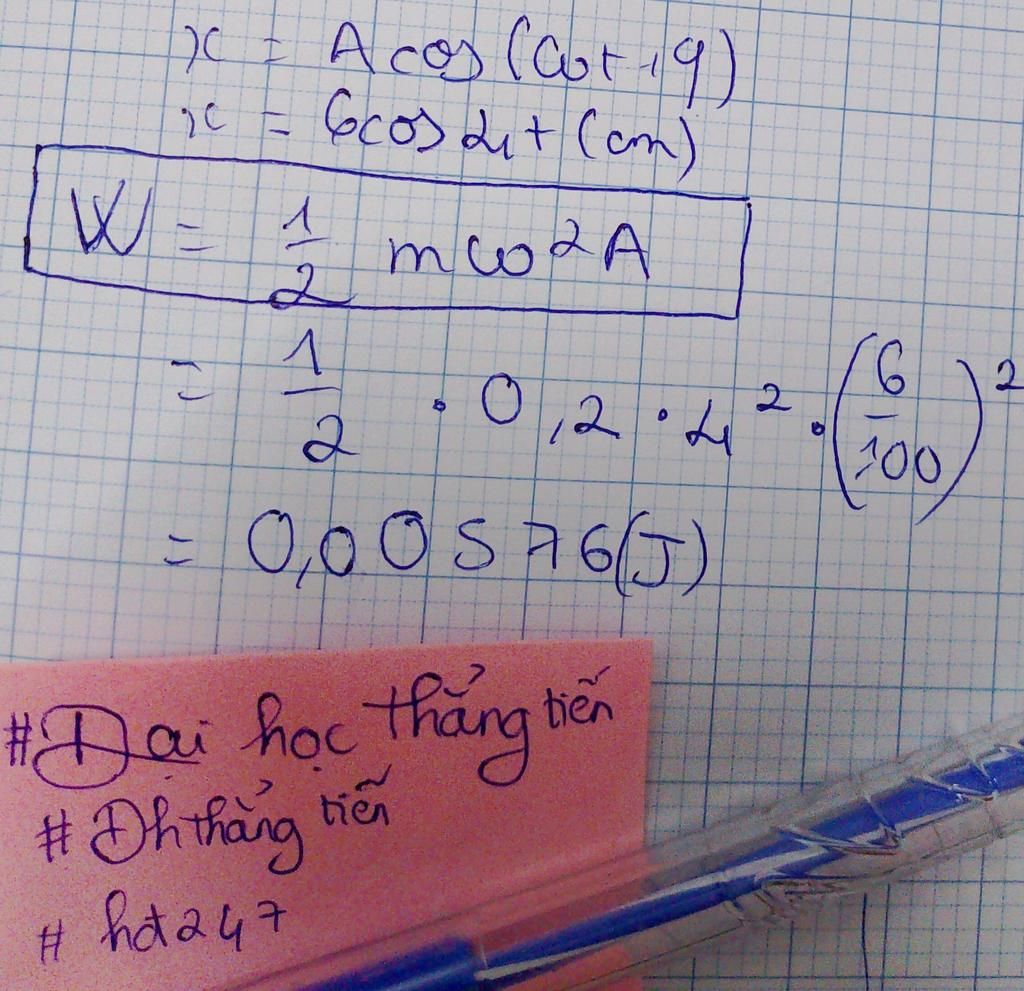 x = A cos (ωt + φ)
x = 6cos 4t (cm)
W = 1/2 mω²A
= 1/2 . 0,2 . 4² . (6/100)²
= 0,00576 (J)
#Đại học thẳng tiến
# Đhthẳng tiến
# hđ247